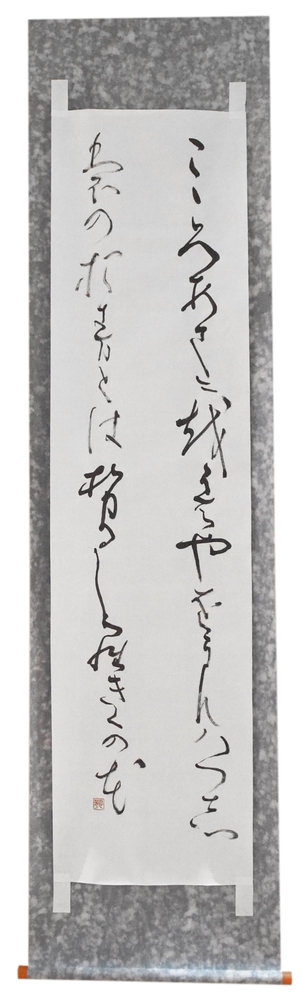 こゝろあてに越らはやをらむはつ志
裳のおき万とは勢るしらきくの花